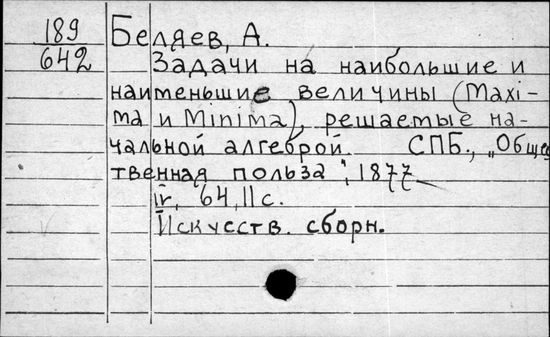 189 Беляев, А.
642 Задачи на наибольшие и
наименьшие величины (Maxi-
ma и Minima), решаемые на-
чальной алгеброй. СПБ., „Общес
твенная польза", 1877
IV, 64, II с.
Искусств. сборн.